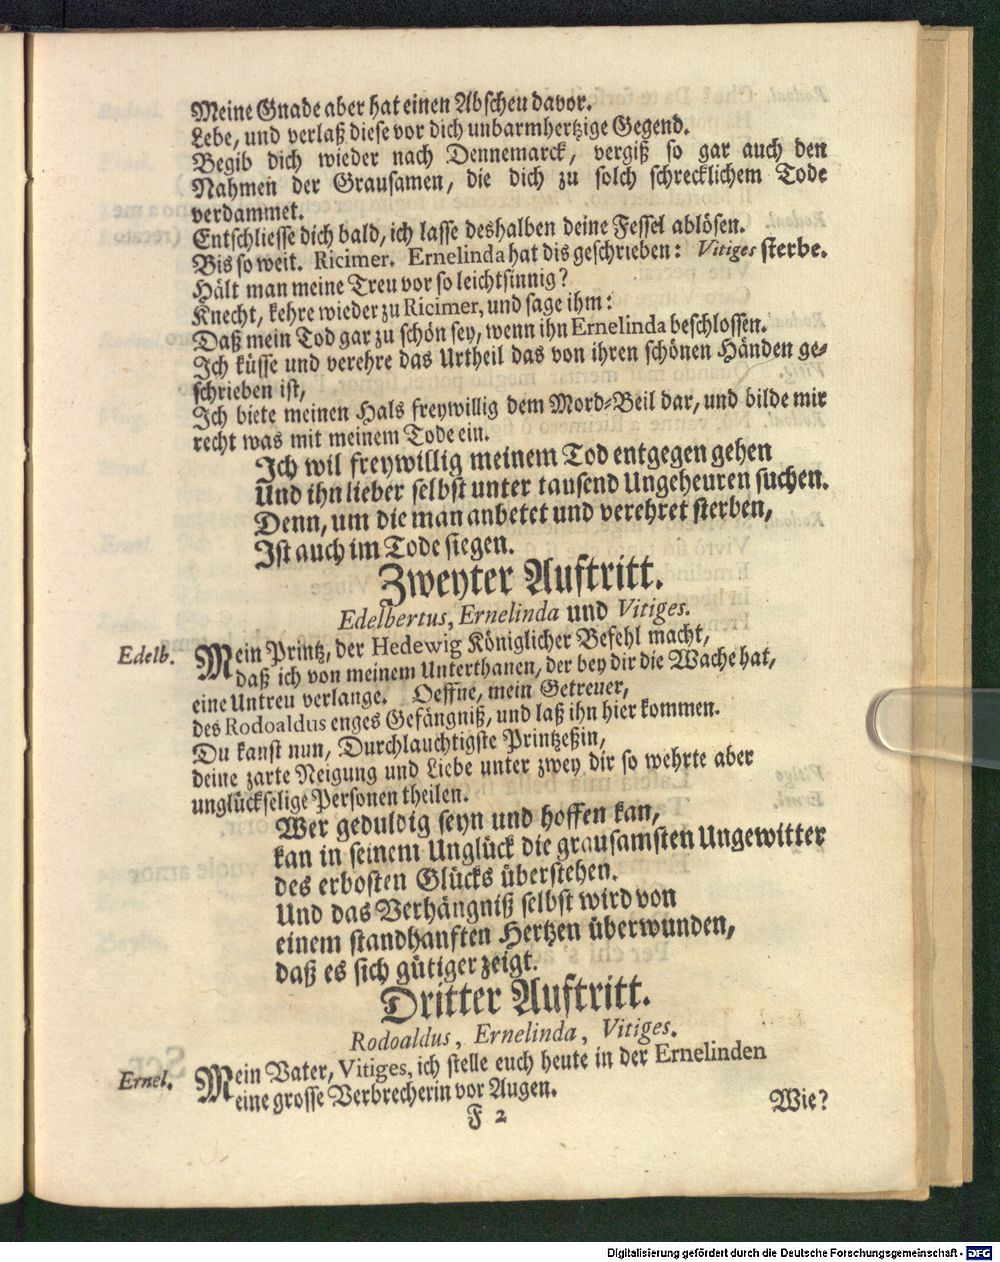 Meine Gnade aber hat einen Abscheu davor.
Lebe, und verlaß diese vor dich unbarmhertzige Gegend.
Begib dich wieder nach Dennemarck, vergiß so gar auch den
Nahmen der Grausamen, die dich zu solch schrecklichem Tode
verdammet.
Entschliesse dich bald, ich lasse deshalben deine Fessel ablösen.
Bis so weit. Ricimer. Ernelinda hat dis geschrieben: Vitiges sterbe.
Hält man meine Treu vor so leichtsinnig?
Knecht, kehre wieder zu Ricimer, und sage ihm:
Daß mein Tod gar zu schön sey, wenn ihn Ernelinda beschlossen.
Ich küsse und verehre das Urtheil das von ihren schönen Händen ge-
schrieben ist,
Ich biete meinen Hals freywillig dem Mord-Beil dar, und bilde mir
recht was mit meinem Tode ein.
Ich wil freywillig meinem Tod entgegen gehen
Und ihn lieber selbst unter tausend Ungeheuren suchen.
Denn, um die man anbetet und verehret sterben,
Ist auch im Tode siegen.
Zweyter Auftritt.
Edelbertus, Ernelinda und Vitiges.
Edelb. Mein Printz, der Hedewig Königlicher Befehl macht,
daß ich von meinem Unterthanen, der bey dir die Wache hat,
eine Untreu verlange. Oeffne, mein Getreuer,
des Rodoaldus enges Gefängniß, und laß ihn hier kommen.
Du kanst nun, Durchlauchtigste Printzeßin,
deine zarte Neigung und Liebe unter zwey dir so wehrte aber
unglückselige Personen theilen.
Wer geduldig seyn und hoffen kan,
kan in seinem Unglück die grausamsten Ungewitter
des erbosten Glücks überstehen.
Und das Verhängniß selbst wird von
einem standhanften Hertzen überwunden,
daß es sich gütiger zeigt.
Dritter Auftritt.
Rodoaldus, Ernelinda, Vitiges.
Ernel. Mein Vater, Vitiges, ich stelle euch heute in der Ernelinden
eine grosse Verbrecherin vor Augen.
F 2
Wie?
Digitalisierung gefördert durch die Deutsche Forschungsgemeinschaft - DFG